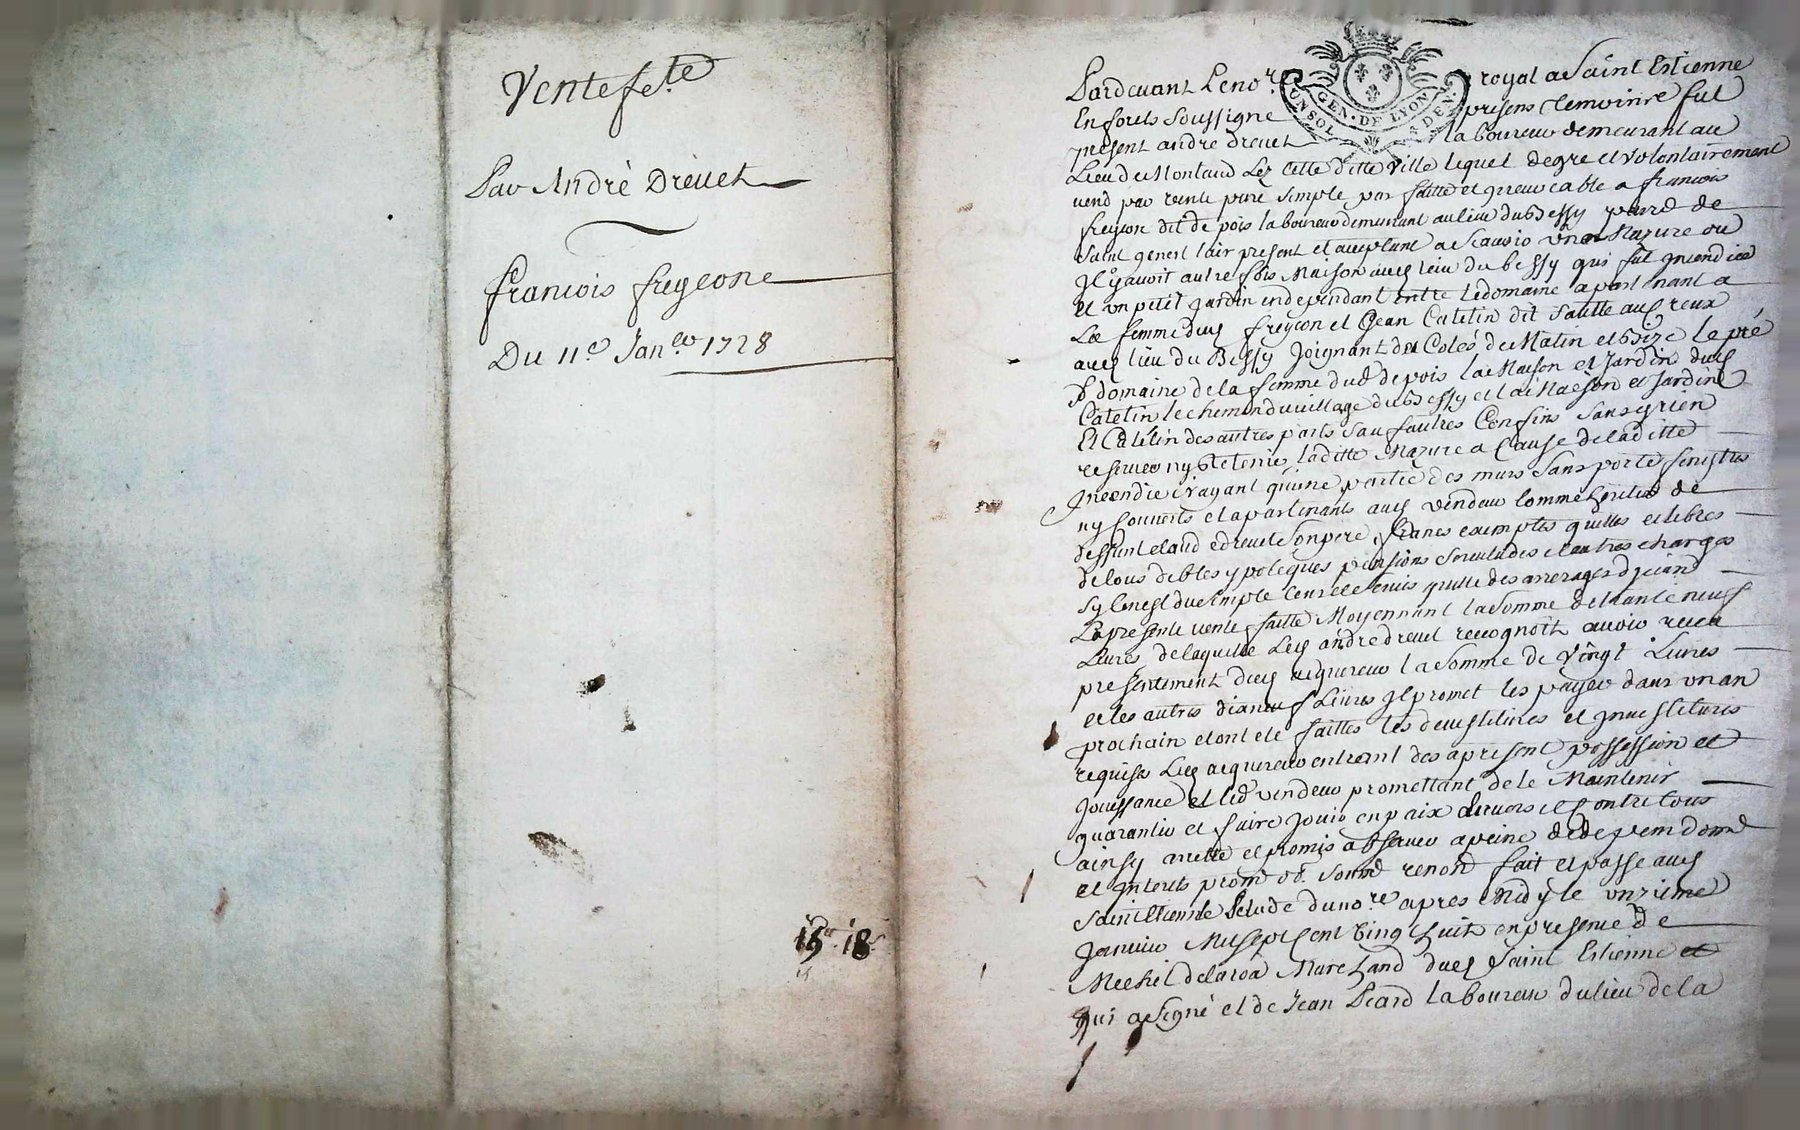 Vente f.te
Par André Dreuet
francois fregeone
Du 11e Jan.er 1728
15 18
GEN · DE LYON
Pardeuant Le no.re royal a Saint Estienne
En forets soussigne presens temoins fut
present andre dreuet laboureur demeurant au
Lieu du Montaud Lez Cette ditte ville lequel de gre et volontairement
vend par vente pure simple parfaitte et yreuocable a francois
fregeon dit de pois laboureur demeurant au lieu du bessy parr.e de
Saint genest lair present et aceptant a scauoir une Mazure ou
Jl y auoit autre fois Maison aud lieu du bessy qui fut Jncendiée
et un petit Jardin independant entre le domaine apartenant a
La femme dud fregeon et Jean Catetin dit
aud lieu du Bessy Joignant de Cotés de Matin et bize le pré
domaine de la femme dud de pois la Maison et Jardin dud
Catetin le chemin du village du bessy et la Maison et Jardin
Et Catetin des autres parts sauf autres Confins sans y rien
reseruer ny Retenir ladite Mazure a Cause de laditte
Jncendie n'ayant qu'une partie des murs sans porte fenestres
ny Couuerts et apartenants aud vendeur Comme heritier de
deffunt Claud dreuet son pere francs exempts quittes et libres
de tous debtes ypoteques pensions seruitudes et autres charges
sy Ce nest du simple Cens et seruis quitte des arrerages d'jcelui
La presente vente faitte Moyennant la somme de trante neuf
Liures de laquelle Led andre dreuet recognoit auoir receu
presentement dud aquereur la somme de Vingt Liures
et les autres dixneuf Liures Jl promet les payer dans un an
prochain et ont ete faittes les deuestitures et Jnuestitures
requises Led aquereur entrant des a present possession et
Jouissance et led vendeur promettant de le Maintenir
guarantir et faire Jouir en paix enuers et Contre tous
ainsy arreté et promis obseruer a peine de depens dom.
et Jnterets prom. obl. soum. renon. fait et passe aud
Saint Etienne Etude du no.re apres Midy le unzieme
Januier Mil sept Cent Vingt huit en presence de
Michel delaroa Marchand dud Saint Estienne et
qui a signé et de Jean Picard laboureur du lieu de la